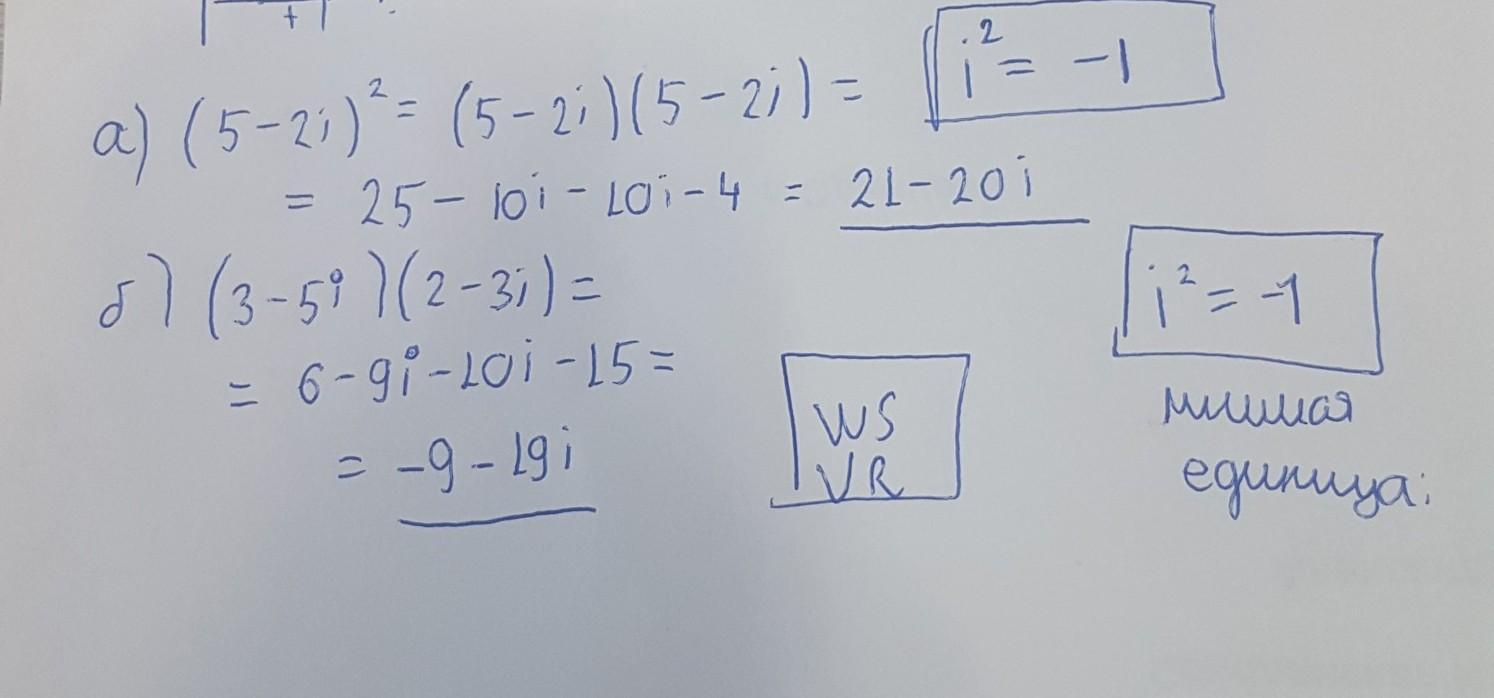 +
а) (5-2i)² = (5-2i)(5-2i) =
i² = -1
= 25 - 10i - 10i - 4 = 21 - 20i
б) (3-5i)(2-3i) =
i² = -1
= 6 - 9i - 10i - 15 =
мнимая
единица:
= -9 - 19i
WS
VR